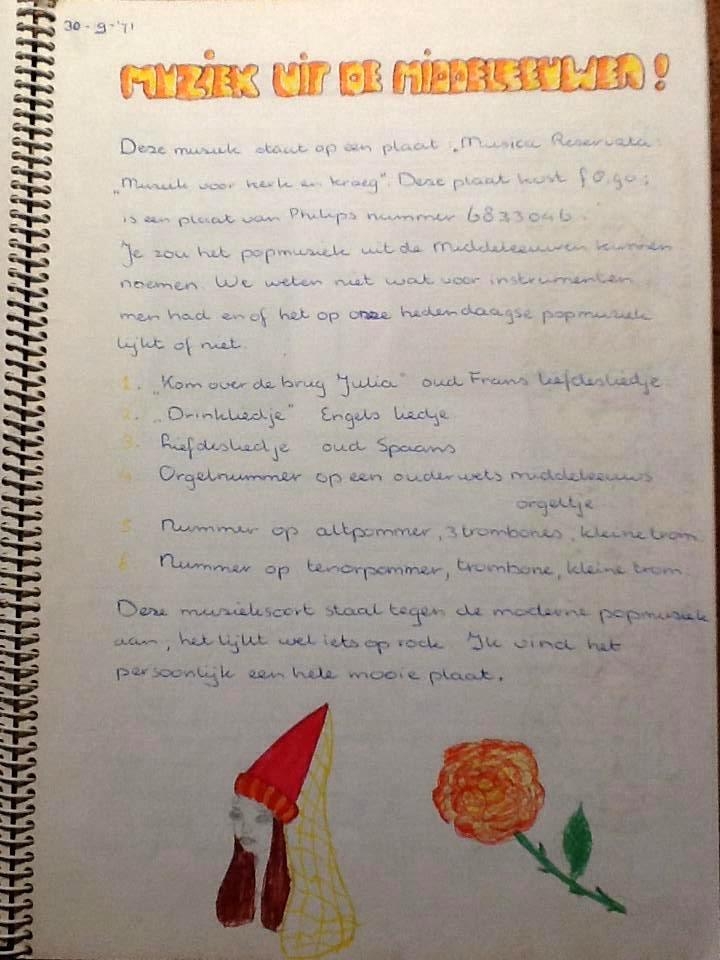 30-9-'71
MUZIEK UIT DE MIDDELEEUWEN!
Deze muziek staat op een plaat: „Musica Reservata:
„Muziek voor kerk en kroeg". Deze plaat kost f 0.90;
is een plaat van Philips nummer 6833046.
Je zou het popmuziek uit de Middeleeuwen kunnen
noemen. We weten niet wat voor instrumenten
men had en of het op onze hedendaagse popmuziek
lijkt of niet.
1. „Kom over de brug Julia" oud Frans liefdesliedje
2. „Drinkliedje" Engels liedje
3. Liefdesliedje oud Spaans
4. Orgelnummer op een ouderwets middeleeuws
orgeltje
5. Nummer op altpommer, 3 trombones, kleine trom.
6. Nummer op tenorpommer, trombone, kleine trom.
Deze muzieksoort staat tegen de moderne popmuziek
aan, het lijkt wel iets op rock. Ik vind het
persoonlijk een hele mooie plaat.